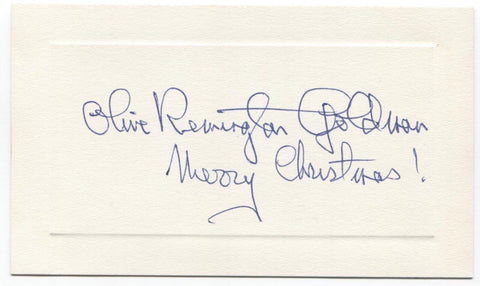 Olive Remington Goldman
Merry Christmas!